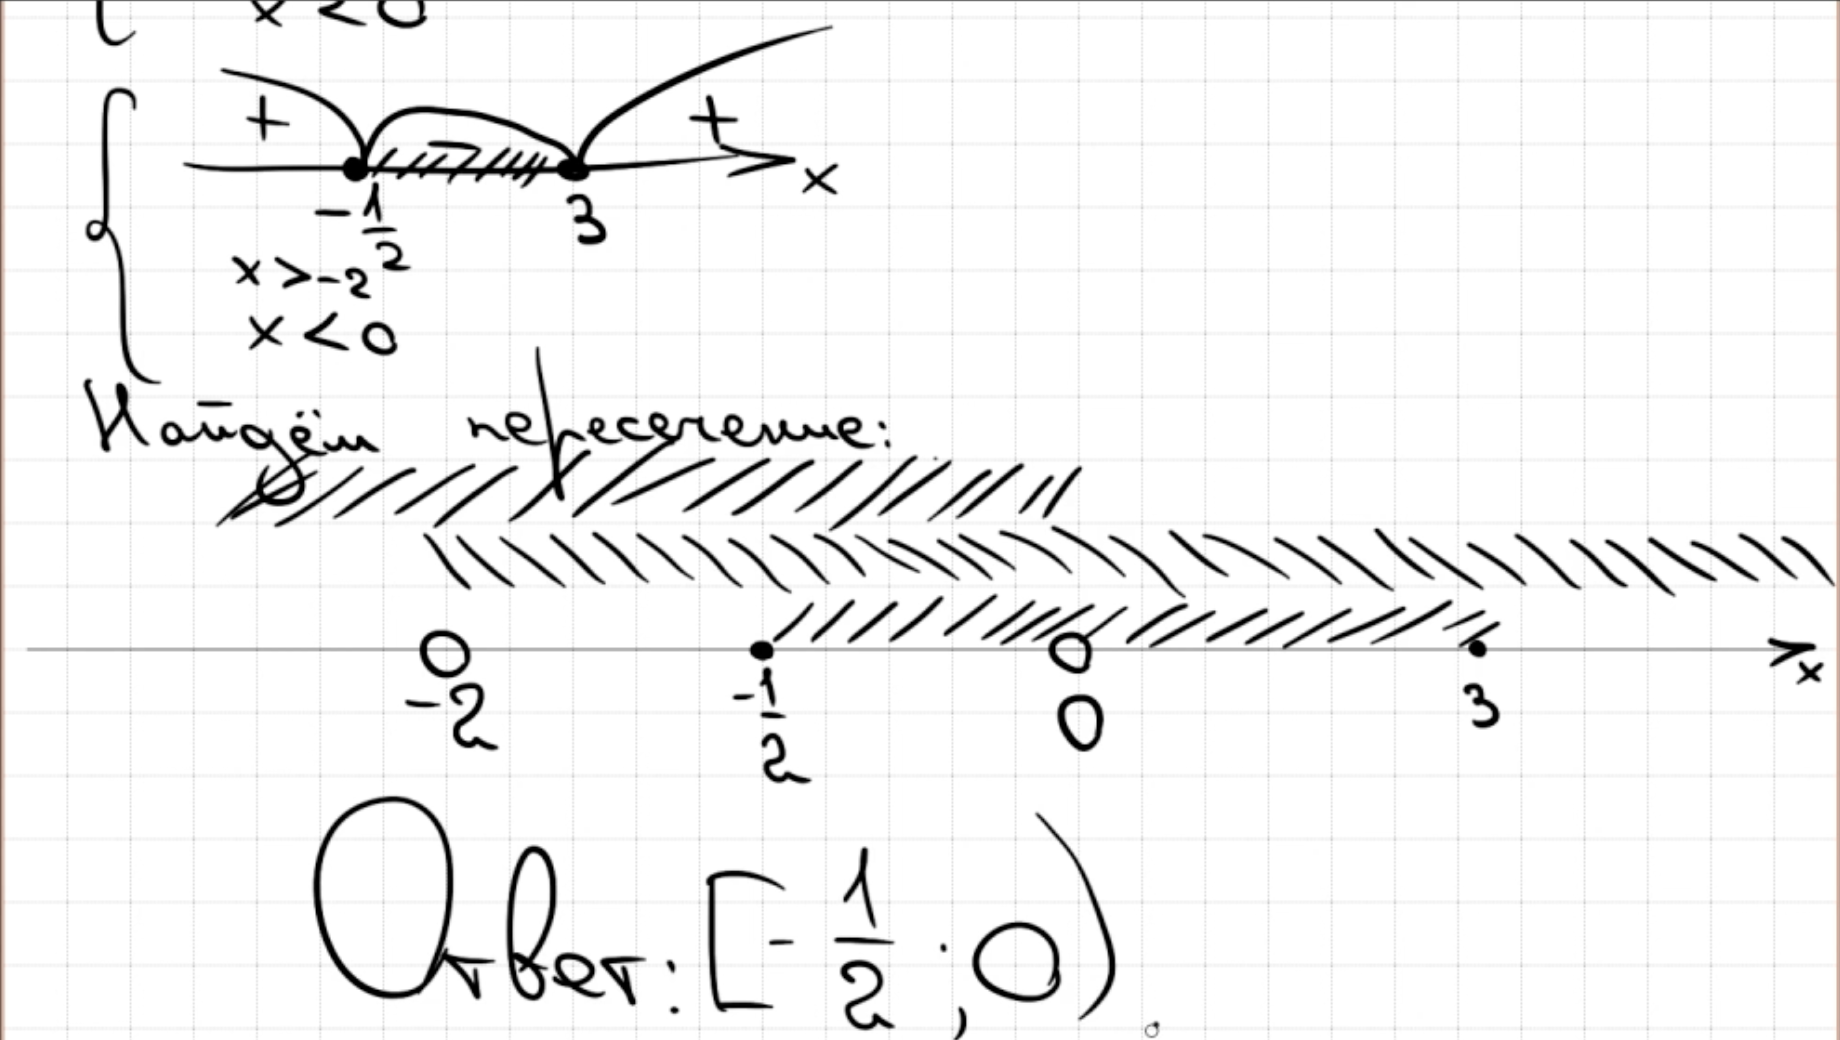 x < 0
+ − + x
-1/2 3
x > -2
x < 0
Найдём пересечение:
-2 -1/2 0 3 x
Ответ: [-1/2; 0).